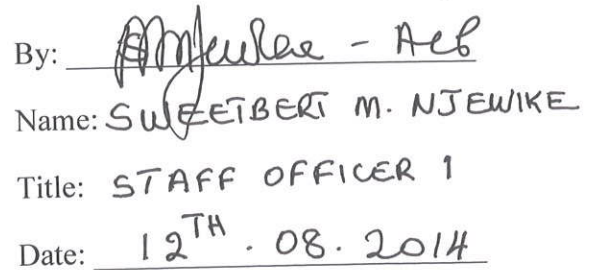 By: - ACP
Name: SWEETBERT M. NJEWIKE
Title: STAFF OFFICER 1
Date: 12TH . 08. 2014